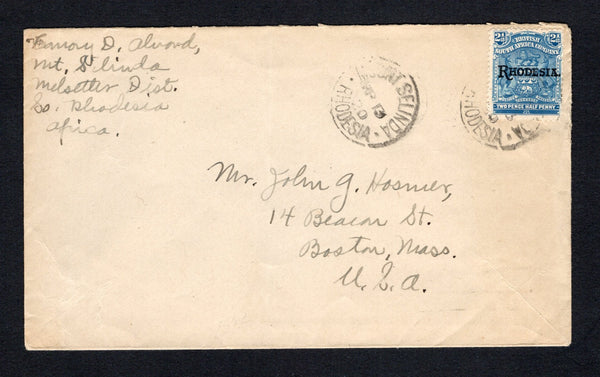 Emory D. Alvord,
Mt. Silinda
Melsetter Dist.
So. Rhodesia
Africa.
MOUNT SELINDA
13
RHODESIA
2½ BRITISH 2½
SOUTH AFRICA COMPANY
RHODESIA.
TWO PENCE HALF PENNY
RHODESIA
Mr. John G. Hosmer,
14 Beacon St.
Boston, Mass.
U.S.A.